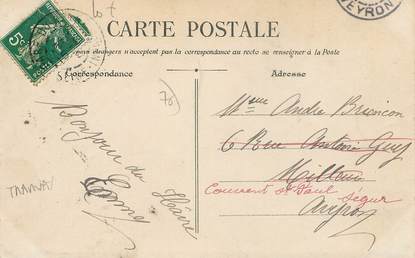 CARTE POSTALE
étrangers n'acceptent pas la correspondance au recto se renseigner à la Poste
Correspondance
Adresse
5c
70
Bonjour du Hâvre
TRAMWAY
Andre
6 Rue Antoine Guy
Millau
Couvent St Paul Ségur
Aveyron